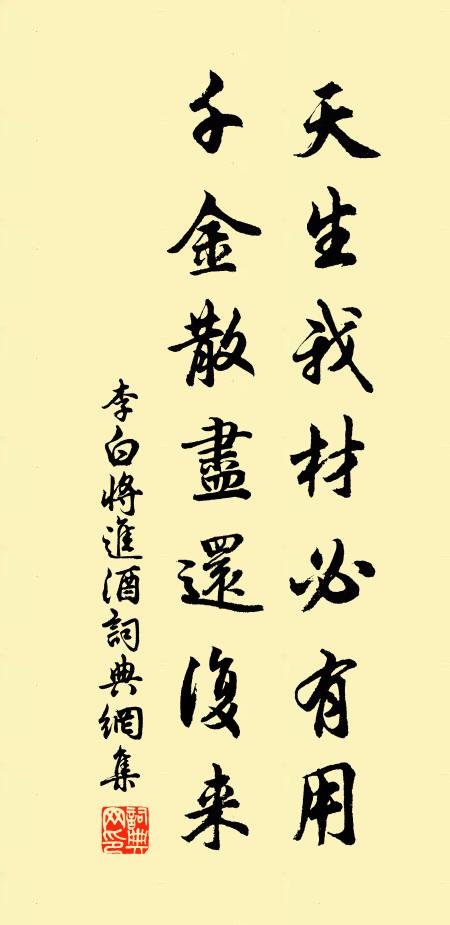 天生我材必有用
千金散盡還復来
李白將進酒詞典網集
詞典
网印